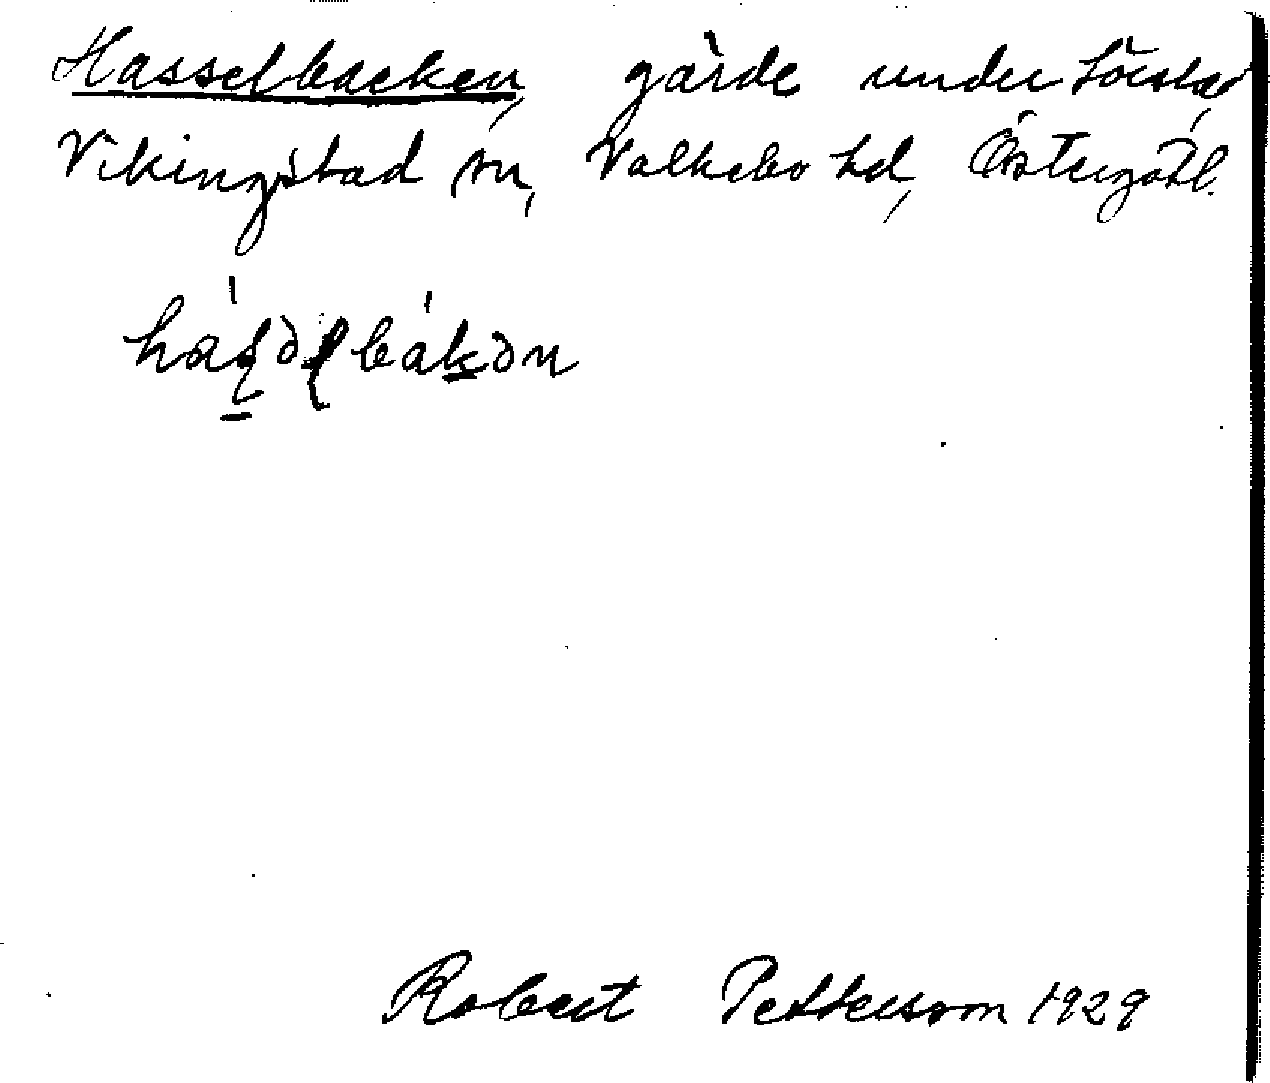 Hasselbacken, gärde under Törsta,
Vikingstad sn, Valkebo hd, Östergötl.
Robert Petterson 1929